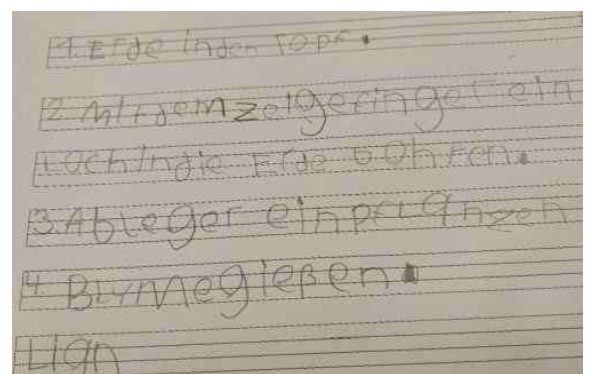 1. Erde in den Topf.
2. Mit dem Zeigefinger ein
Loch in die Erde bohren.
3. Ableger einpflanzen
4. Blume gießen.
Lian